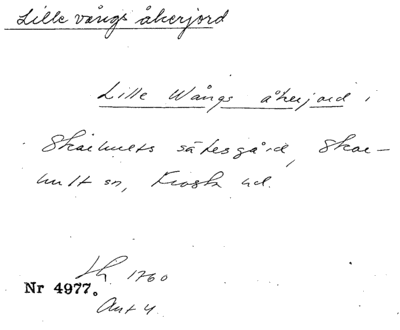 Lille vångs åkerjord
Lille Wångs åkerjord i
Skarhults sätesgård, Skar-
hult sn, Frosta hd.
Lh 1760
Nr 4977.
Akt 4